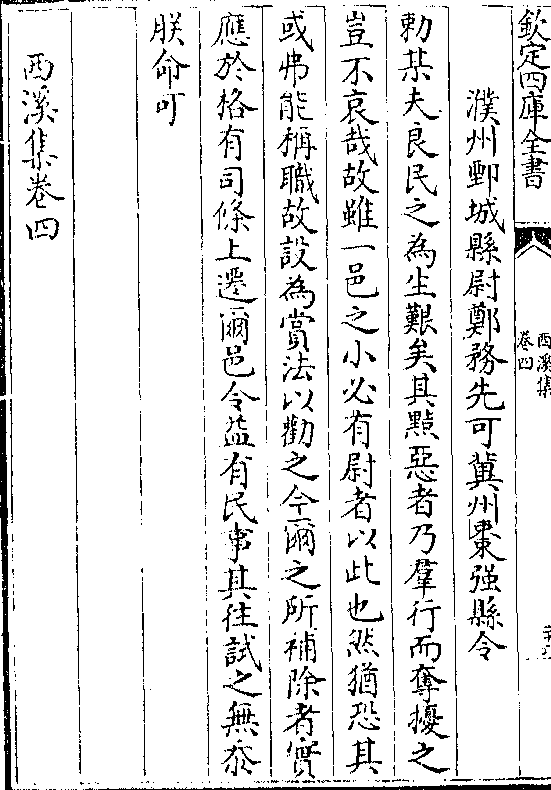 欽定四庫全書
西溪集
卷四
濮州鄄城縣尉鄭務先可冀州棗强縣令
勅某夫良民之為生艱矣其黠惡者乃羣行而奪擾之
豈不哀哉故雖一邑之小必有尉者以此也然猶恐其
或弗能稱職故設為賞法以勸之今爾之所補除者實
應於格有司條上遷爾邑令益有民事其往試之無忝
朕命可
西溪集卷四